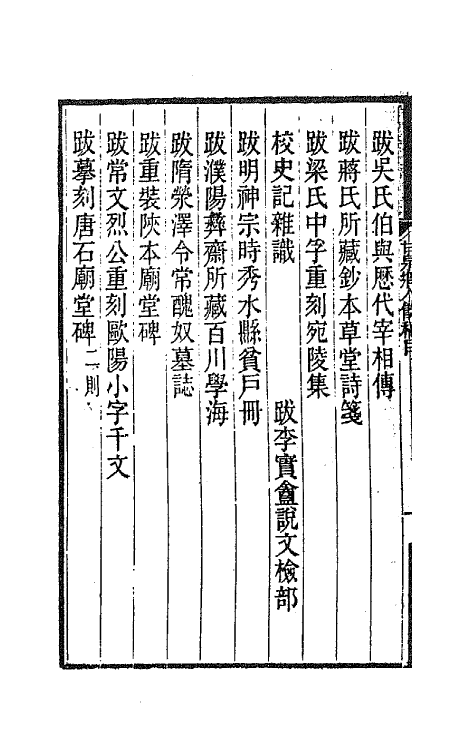 跋吳氏伯與歷代宰相傳
跋蔣氏所藏鈔本草堂詩箋
跋梁氏中孚重刻宛陵集
校史記雜識　跋李實盦說文檢部
跋明神宗時秀水縣貧戶冊
跋濮陽彝齋所藏百川學海
跋隋滎澤令常醜奴墓誌
跋重裝陜本廟堂碑
跋常文烈公重刻歐陽小字千文
跋摹刻唐石廟堂碑二則